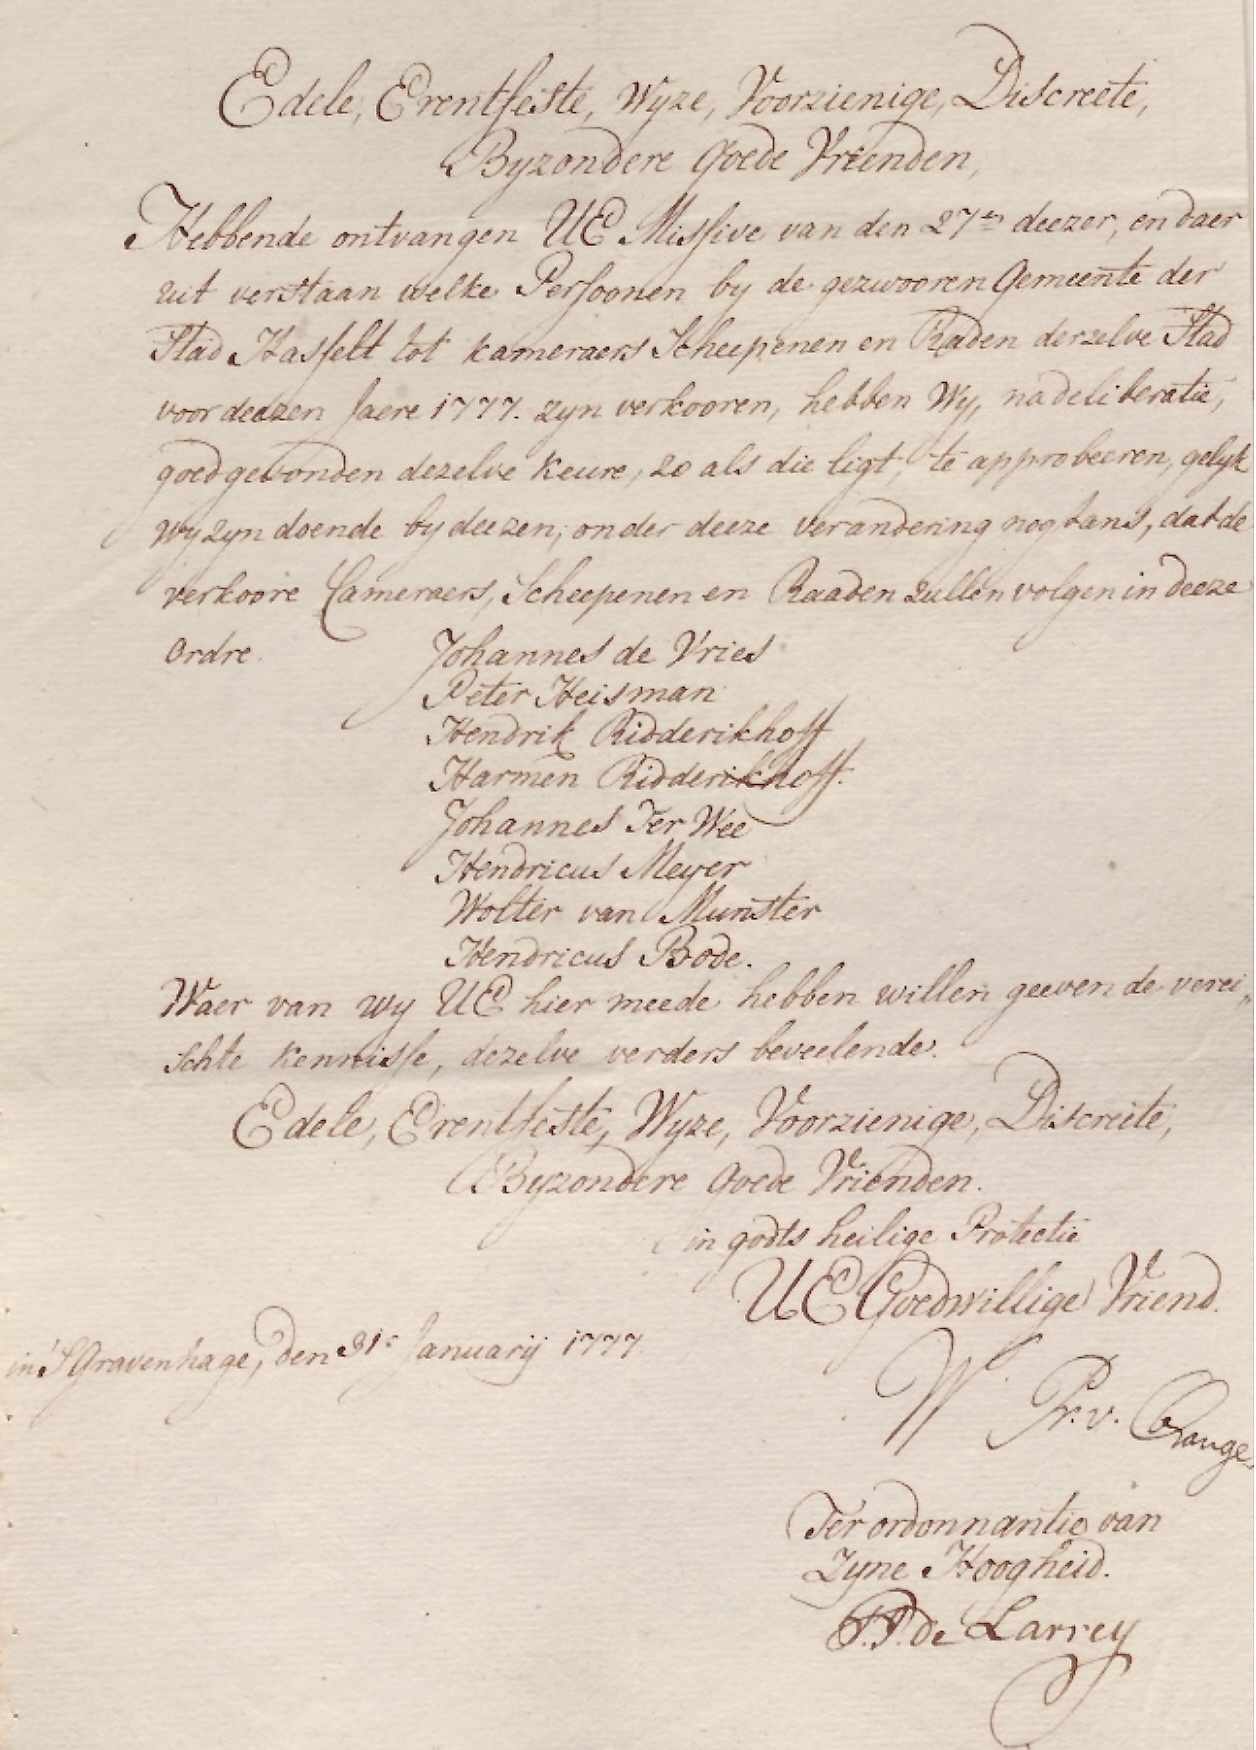 Edele, Erentfeste, Wyze, Voorzienige, Discreete,
Byzondere Goede Vrienden,
Hebbende ontvangen UE Missive van den 27en deezer, en daer
uit verstaan welke Persoonen by de gezwooren Gemeente der
Stad Hasselt tot kameraers Scheepenen en Raden derzelve Stad
voor deezen Jaere 1777. zyn verkooren, hebben Wy, na deliberatie,
goedgevonden dezelve Keure, zo als die ligt, te approbeeren, gelyk
Wy zyn doende by deezen; onder deeze verandering nogtans, dat de
verkoore Cameraers, Scheepenen en Raaden zullen volgen in deeze
ordre.
Johannes de Vries
Peter Heisman
Hendrik Ridderikhoff
Harmen Ridderikhoff.
Johannes Ter Wee
Hendricus Meyer
Wolter van Munster
Hendricus Bode.
Waer van wy UE hier meede hebben willen geeven de verei„
schte kennisse, dezelve verders beveelende.
Edele, Erentfeste, Wyze, Voorzienige, Discreete,
Byzondere Goede Vrienden.
in godts heilige Protectie
UE Goedwillige Vriend.
in 'SGravenhage, den 31e January 1777.
W Pr. v. Orange.
Ter ordonnantie van
Zyne Hoogheid.
T. I. de Larrey